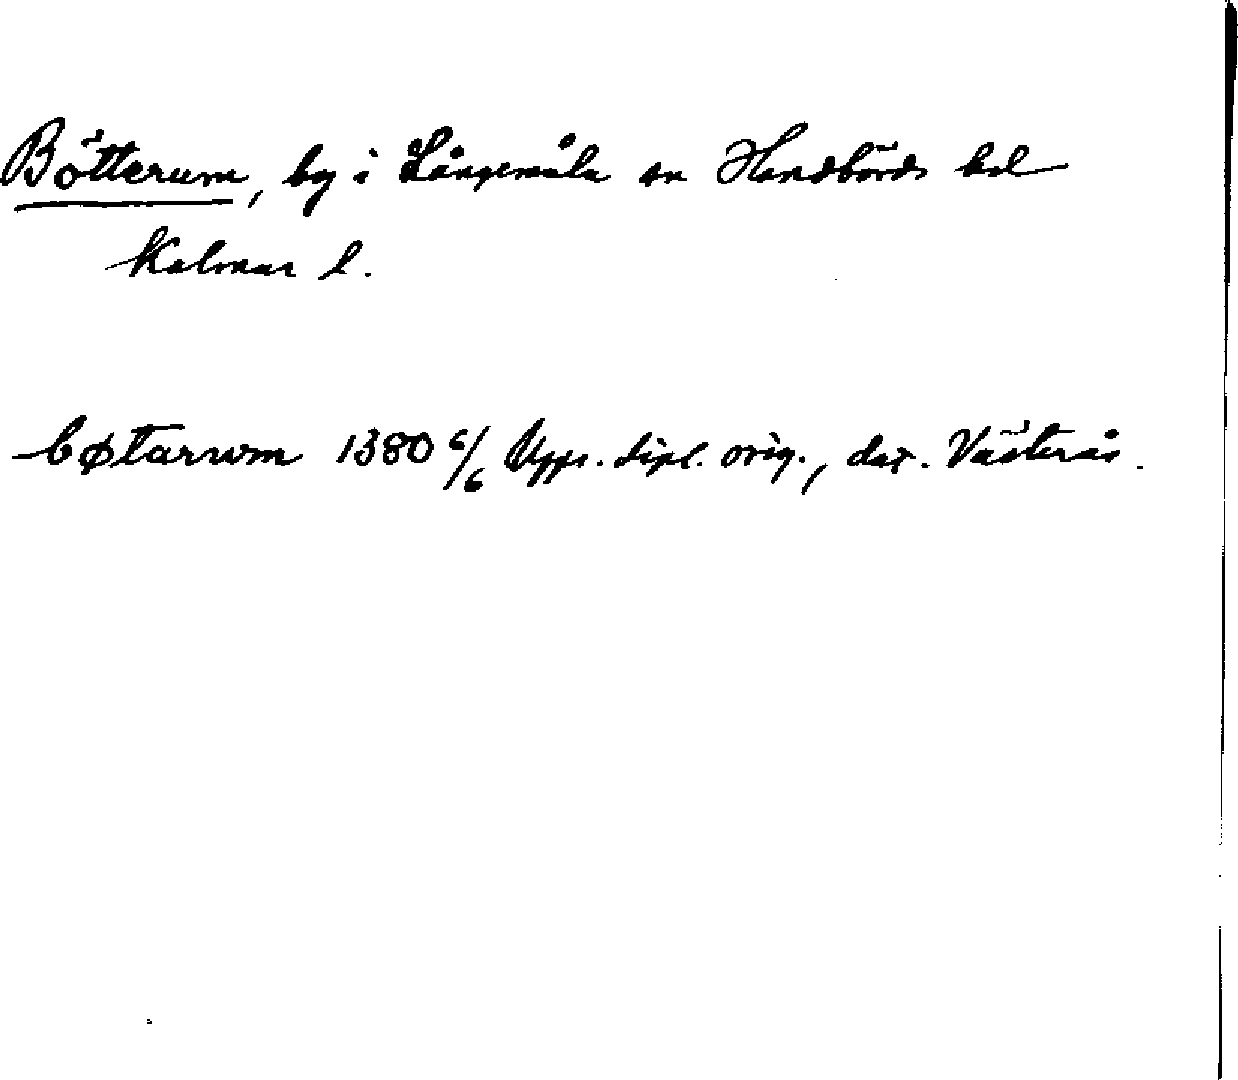 Bötterum, by i Långemåla sn Handbörds hd
Kalmar l.
bøtarum 1380 6/6 Upps. dipl. orig., dat. Västerås.